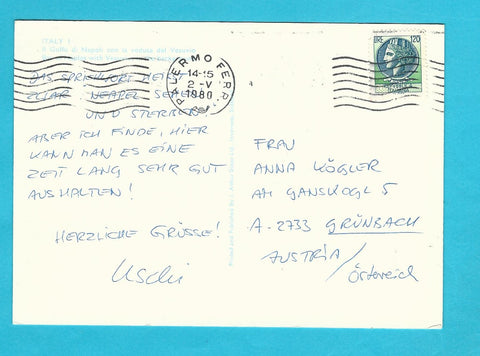 ITALY 1
Il Golfo di Napoli con la veduta del Vesuvio
PALERMO FERR.
14-15
2-V
1980
120
DAS SPRICHWORT HEISST
ZWAR NEAPEL SEHEN
UND STERBEN!
ABER ICH FINDE, HIER
KANN MAN ES EINE
ZEIT LANG SEHR GUT
AUSHALTEN!
HERZLICHE GRÜSSE!
Uschi
FRAU
ANNA KÖGLER
AM GANSKOGL 5
A-2733 GRÜNBACH
AUSTRIA/
Österreich